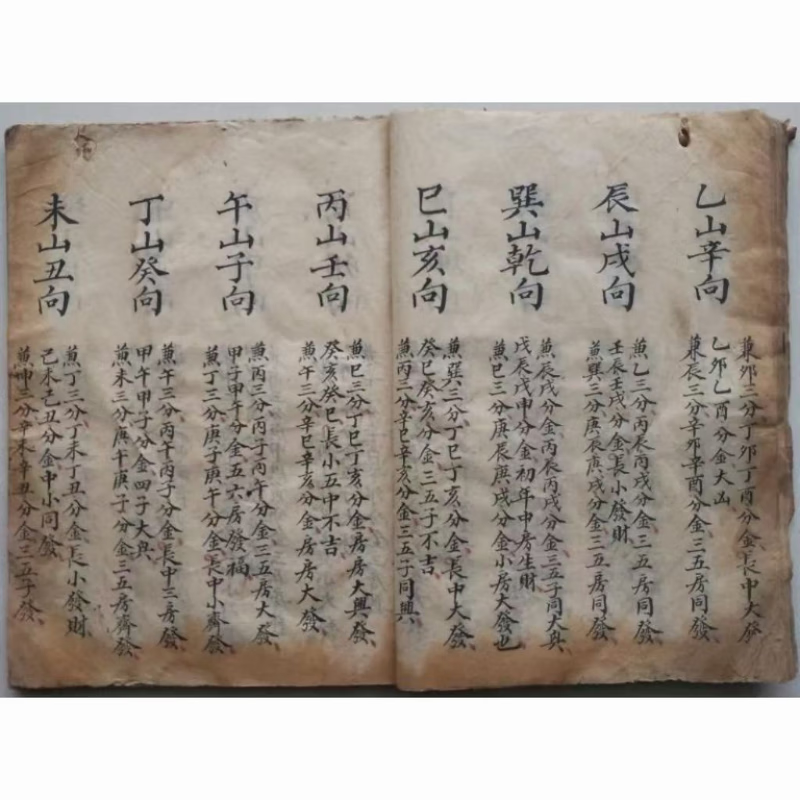 乙山辛向
兼卯三分丁卯丁酉分金長中大發
乙卯乙酉分金大凶
兼辰三分辛卯辛酉分金三五房同發
辰山戌向
兼乙三分丙辰丙戌分金三五房同發
壬辰壬戌分金長小發財
兼巽三分庚辰庚戌分金三五房同發
巽山乾向
兼辰戌分金丙辰丙戌分金三五子同大興
戊辰戊申分金初年中房生財
兼巳三分庚辰庚戌分金小房大發也
巳山亥向
兼巽三分丁巳丁亥分金長中大發
癸巳癸亥分金三五子不吉
兼丙三分辛巳辛亥分金三五子同興
丙山壬向
兼巳三分丁巳丁亥分金房房大興發
癸亥癸巳長小五中不吉
兼午三分辛巳辛亥分金房房大發
午山子向
兼丙三分丙子丙午分金三五房大發
甲子甲午分金五六房發福
兼丁三分庚子庚午分金長中小齊發
丁山癸向
兼午三分丙午丙子分金長中三房發
甲午甲子分金四子大興
兼未三分庚午庚子分金三五房齊發
未山丑向
兼丁三分丁未丁丑分金長小發財
己未己丑分金中小同發
兼坤三分辛未辛丑分金三五子發